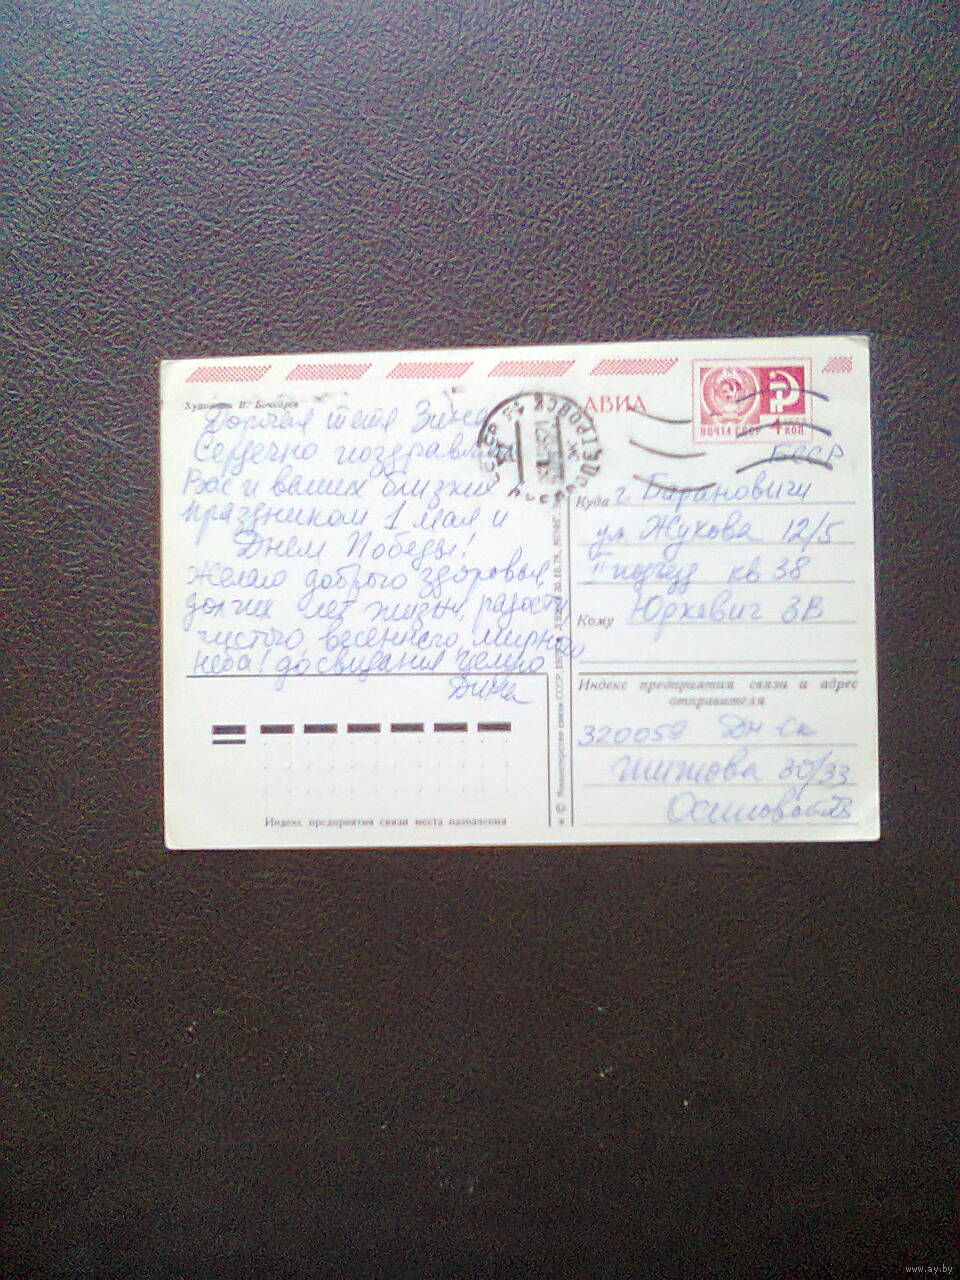 Художник В. Бочкарев
Дорогая тетя Зина
Сердечно поздравляю
Вас и ваших близких с
праздником 1 мая и
Днем Победы!
Желаю доброго здоровья,
долгих лет жизни, радости
чистого, весеннего, мирного
неба! до свидания целую
Дина
Индекс предприятия связи места назначения
© Министерство связи СССР
АВИА
ПОЧТА СССР 4 КОП
БССР
Куда г. Барановичи
ул Жукова 12/5
II подъезд кв 38
Кому Юркевич З В
Индекс предприятия связи и адрес
отправителя
320059 Дн-ск
Титова 30/33
www.ay.by